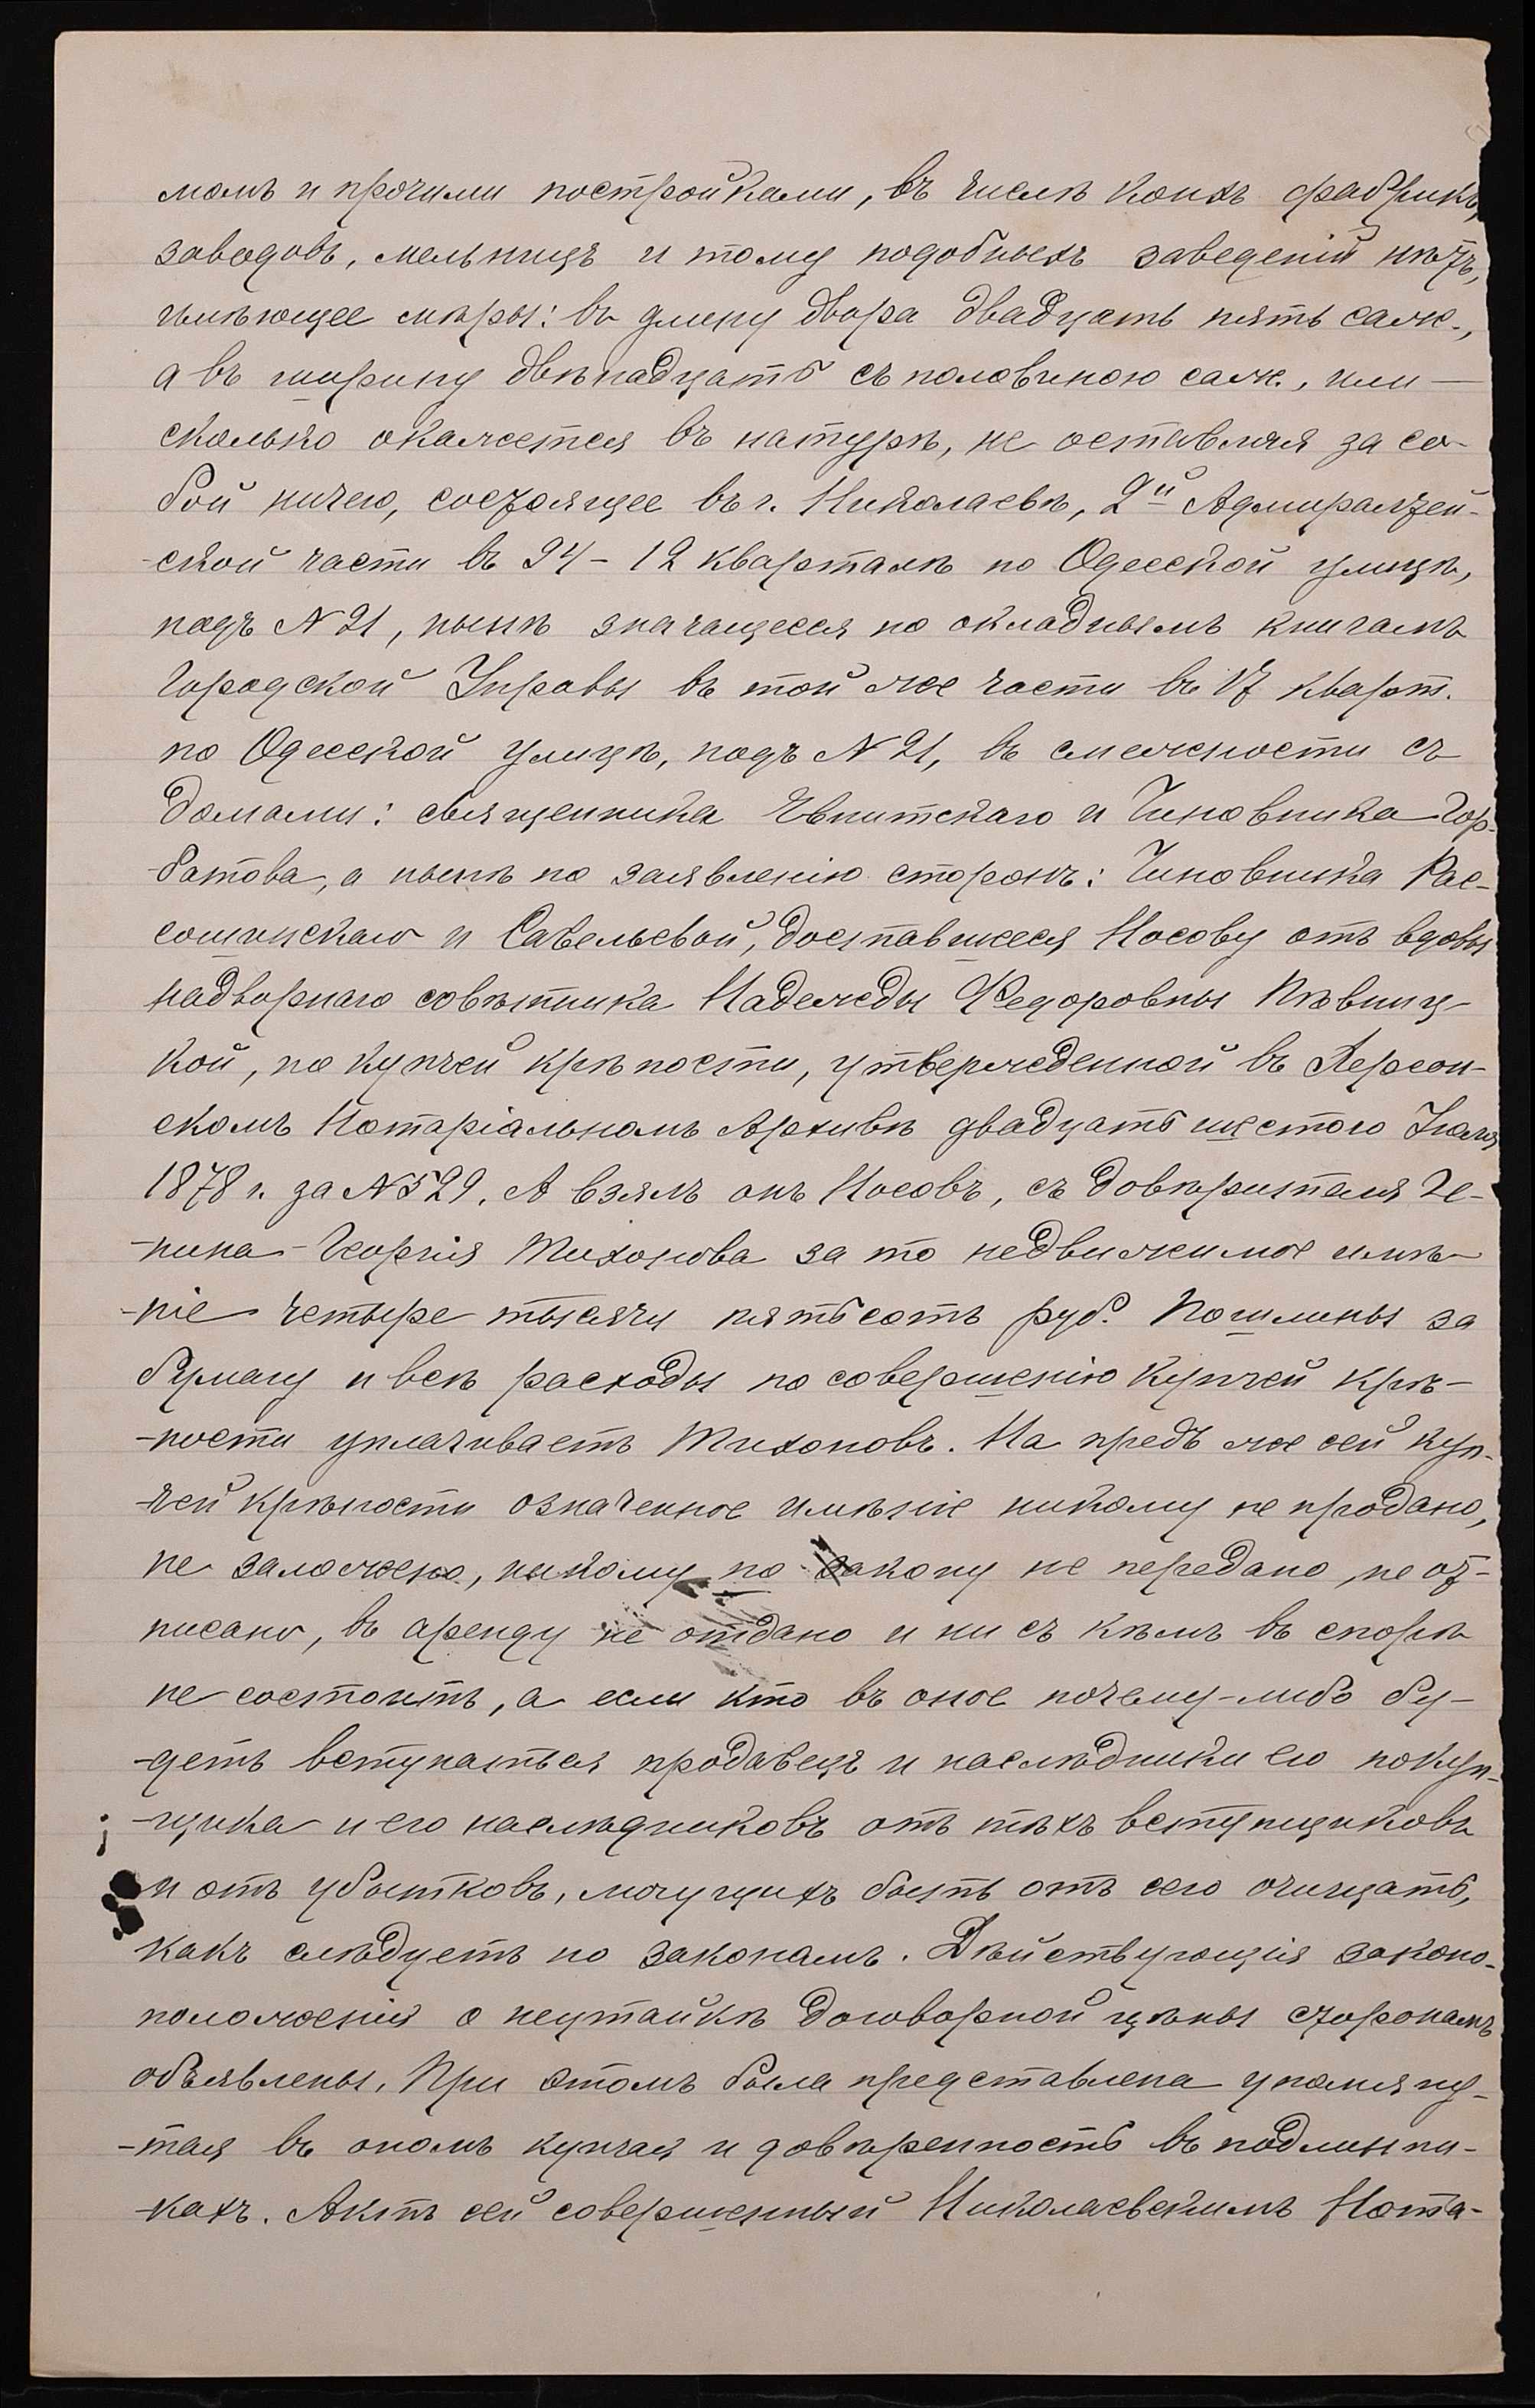 момъ и прочими постройками, въ числѣ коихъ фабрикъ,
заводовъ, мельницъ и тому подобныхъ заведеній нѣтъ,
имѣющее мѣры: въ длину двора двадцать пять саж.,
а въ ширину двѣнадцать съ половиною саж., или —
сколько окажется въ натурѣ, не оставляя за со-
бой ничего, состоящее въ г. Николаевѣ, 2й Адмиралтей-
-ской части въ 24 - 12 кварталѣ по Одесской улицѣ,
подъ № 21, нынѣ значащееся по окладнымъ книгамъ
Городской Управы въ той же части въ 17 кварт.
по Одесской улицѣ, подъ № 21, въ смежности съ
домами: священника Ивнитскаго и Чиновника Гор-
-батова, а нынѣ по заявленію сторонъ: Чиновника Рас-
сошинскаго и Савельевой, доставшееся Носову отъ вдовы
надворнаго совѣтника Надежды Федоровны Пѣвниц-
кой, по купчей крѣпости, утвержденной въ Херсон-
скомъ Нотаріальномъ Архивѣ двадцать шестого Іюля
1878 г. за № 529. А взялъ онъ Носовъ, съ довѣрителя Че-
-пина - Георгія Тихонова за то недвижимое имѣ-
-ніе четыре тысячи пятьсотъ руб. Пошлины за
бумагу и всѣ расходы по совершенію купчей крѣ-
-пости уплачиваетъ Тихоновъ. На предъ же сей куп-
-чей крѣпости означенное имѣніе никому не продано,
не заложено, никому по закону не передано, не от-
писано, въ аренду не отдано и ни съ кѣмъ въ спорѣ
не состоитъ, а если кто въ оное почему-либо бу-
-детъ вступаться продавецъ и наслѣдники его покуп-
-щика и его наслѣдниковъ отъ тѣхъ вступщиковъ
и отъ убытковъ, могущихъ быть отъ сего очищать,
какъ слѣдуетъ по законамъ. Дѣйствующія законо-
положенія о неутайкѣ договорной цѣны сторонамъ
объявлены. При этомъ была представлена упомяну-
-тая въ ономъ купчая и довѣренность въ подлинни-
-кахъ. Актъ сей совершенный Николаевскимъ Нота-